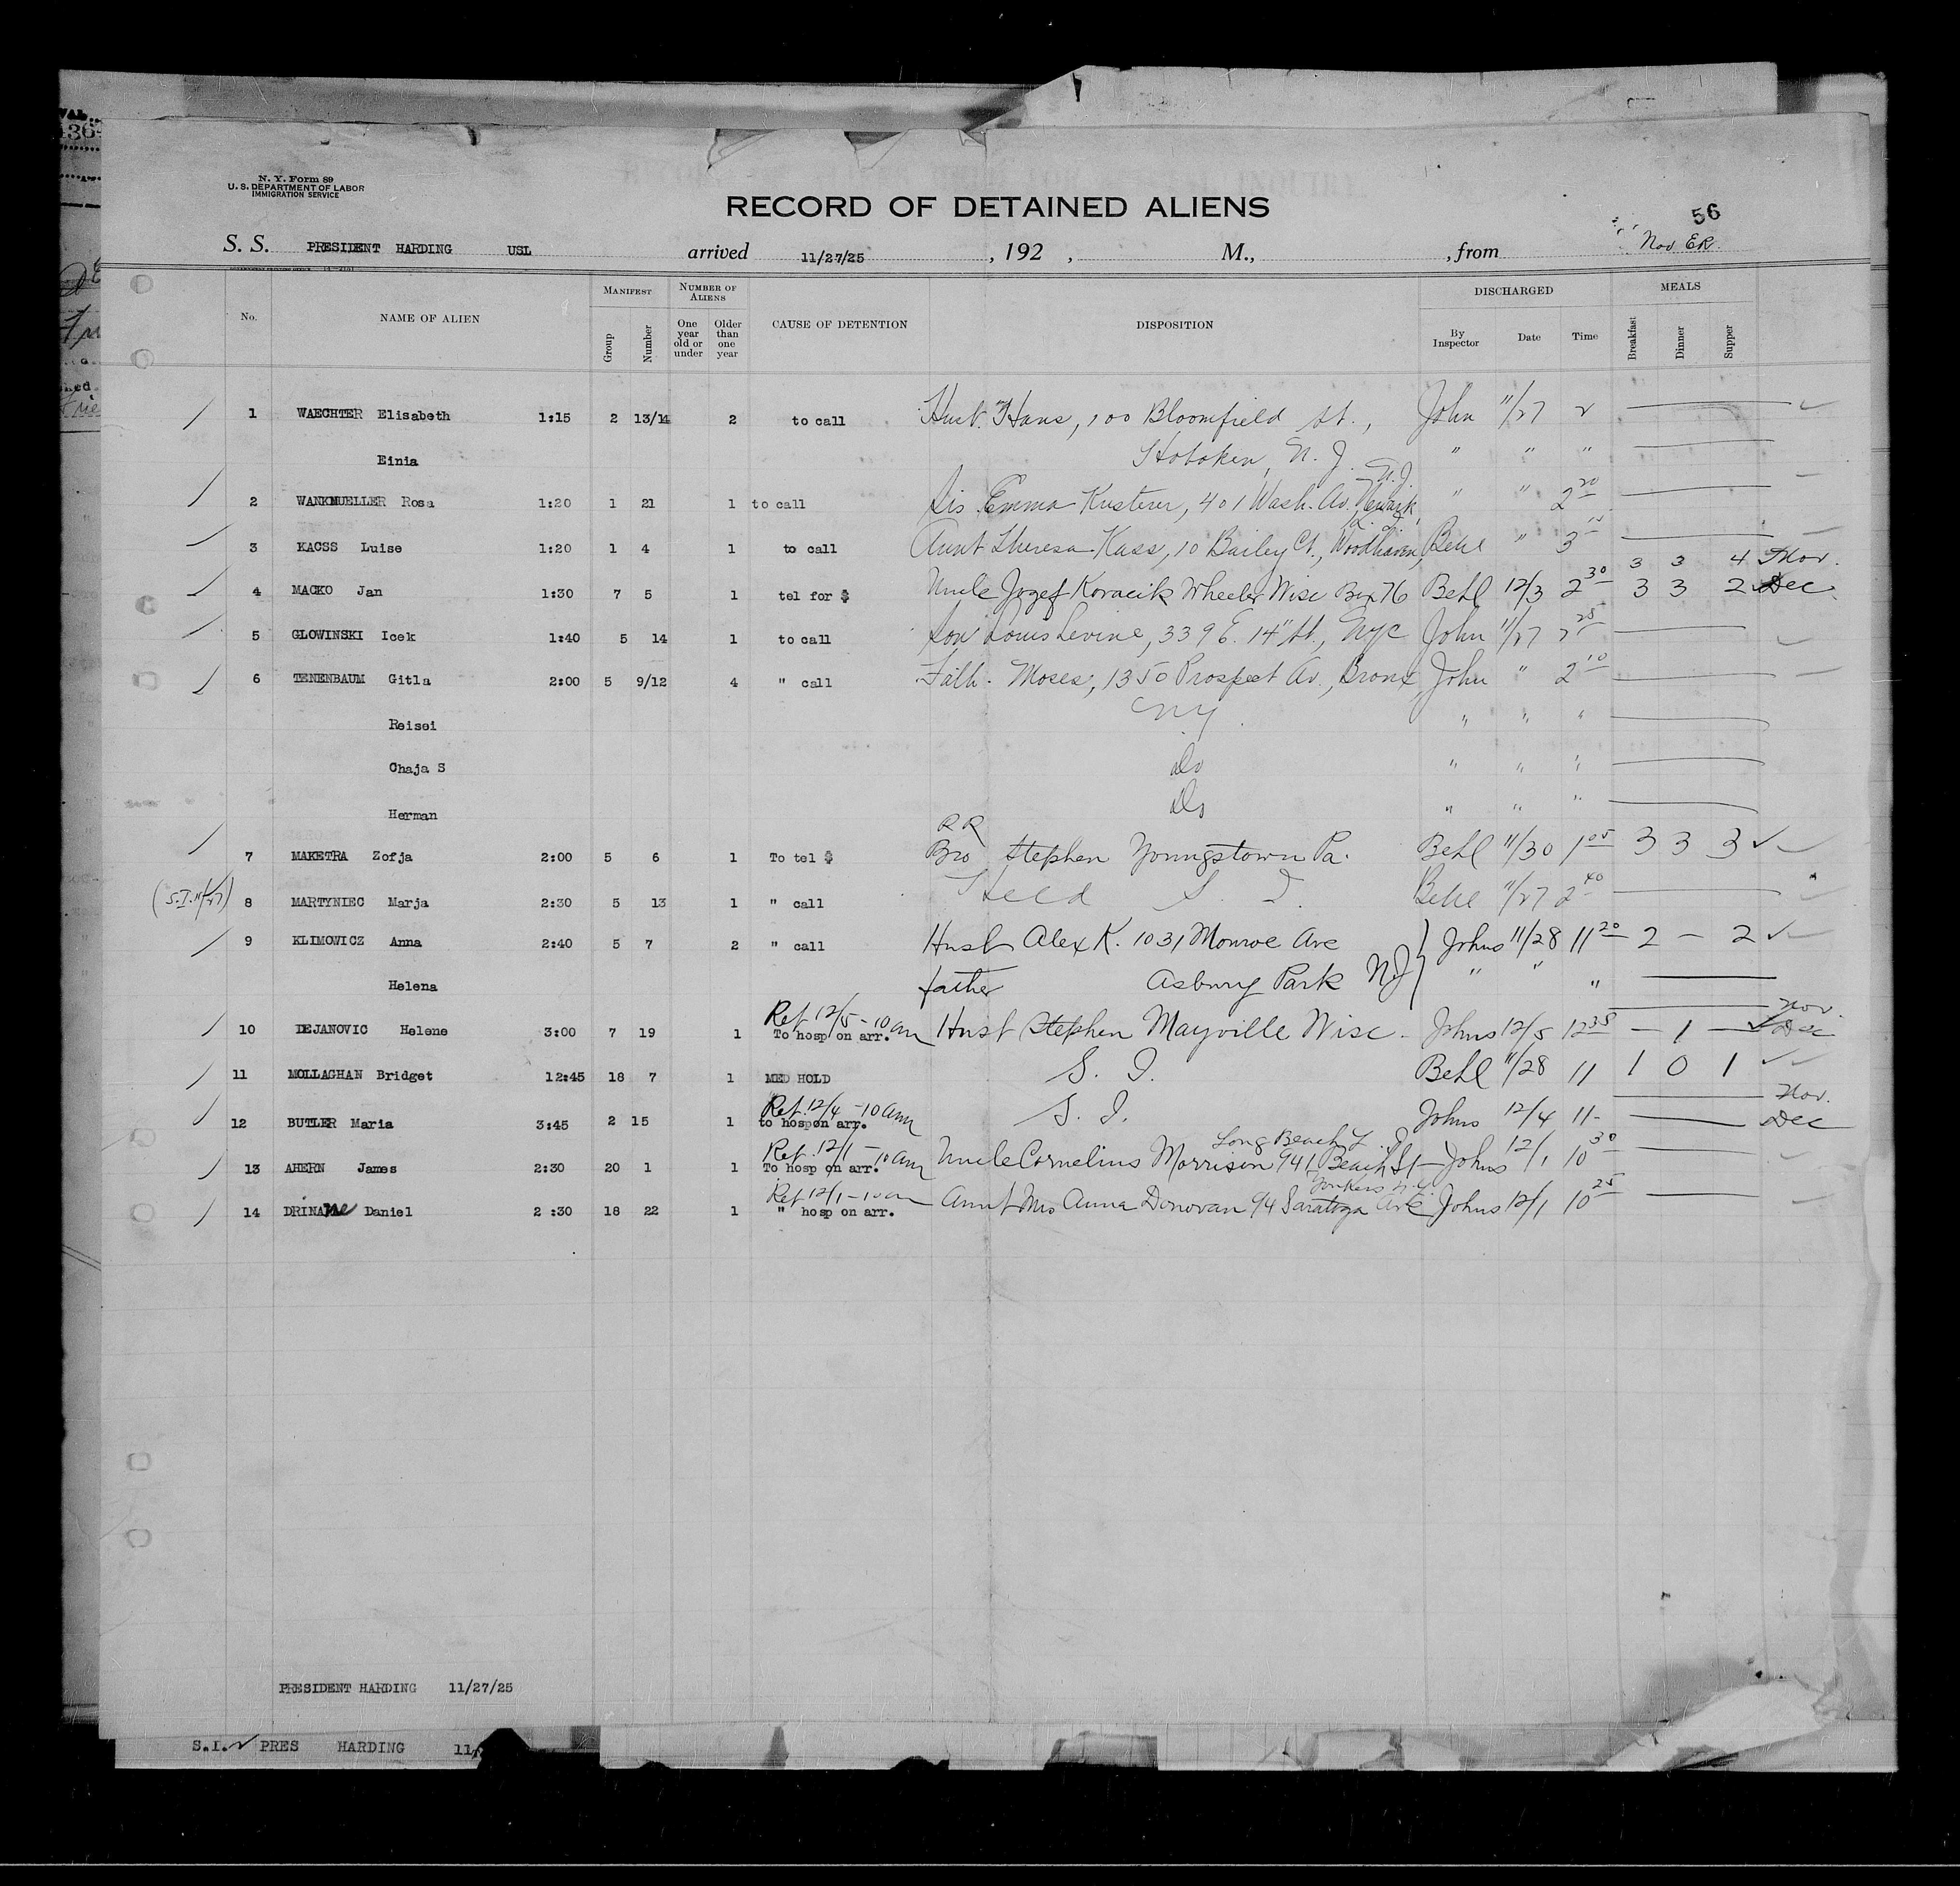 N. Y. Form 89
U. S. DEPARTMENT OF LABOR
IMMIGRATION SERVICE
RECORD OF DETAINED ALIENS
56
S. S. PRESIDENT HARDING USL arrived 11/27/25, 192 , M., , from Nov ER.
No. NAME OF ALIEN MANIFEST Group Number NUMBER OF ALIENS One year old or under Older than one year CAUSE OF DETENTION DISPOSITION DISCHARGED By Inspector Date Time MEALS Breakfast Dinner Supper
1 WAECHTER Elisabeth 1:15 2 13/14 2 to call Husb. Hans, 100 Bloomfield St., John 11/27 2
Einia Hoboken, N. J. " " "
N.J.
2 WANKMUELLER Rosa 1:20 1 21 1 to call Sis Emma Kusterer, 401 Wash. Av. Newark, " " 2 20
L. I.
3 KACSS Luise 1:20 1 4 1 to call Aunt Theresa Kass, 10 Bailey Ct., Woodhaven, Behl " 3 15
3 3 4 Nov.
4 MACKO Jan 1:30 7 5 1 tel for $ Uncle Jozef Kovacik Wheeler Wisc Box 76 Behl 12/3 2 30 3 3 2 Dec
5 GLOWINSKI Icek 1:40 5 14 1 to call Son Louis Levine, 339 E. 14" St., NYC John 11/27 2 25
6 TENENBAUM Gitla 2:00 5 9/12 4 " call Fath. Moses, 1350 Prospect Av., Bronx John " 2 10
Reisei NY. " " "
Chaja S do " " "
Herman Do " " "
RR
7 MAKETRA Zofja 2:00 5 6 1 To tel $ Bro Stephen Youngstown Pa. Behl 11/30 1 05 3 3 3
(S.I. 11/27) 8 MARTYNIEC Marja 2:30 5 13 1 " call Held S. I. Behl 11/27 2 40
9 KLIMOWICZ Anna 2:40 5 7 2 " call Husb Alex K. 1031 Monroe Ave Johns 11/28 11 20 2 - 2
Helena father Asbury Park NJ " " "
Ret 12/5-10 am Nov.
10 DEJANOVIC Helene 3:00 7 19 1 To hosp on arr. Husb Stephen Mayville Wisc. Johns 12/5 12 35 - 1 - Dec
11 MOLLAGHAN Bridget 12:45 18 7 1 MED HOLD S. I. Behl 11/28 11 1 0 1
Ret. 12/4 -10 am Nov.
12 BUTLER Maria 3:45 2 15 1 to hosp on arr. S. I. Johns 12/4 11- Dec
Ret. 12/1 - 10 am Long Beach L. I.
13 AHERN James 2:30 20 1 1 To hosp on arr. Uncle Cornelius Morrison 941 Beach St - Johns 12/1 10 30
Ret 12/1-10 am Yonkers N.Y.
14 DRINANE Daniel 2:30 18 22 1 " hosp on arr. Aunt Mrs Anna Donovan 94 Saratoga Ave Johns 12/1 10 25
PRESIDENT HARDING 11/27/25
S.I. PRES HARDING 11/